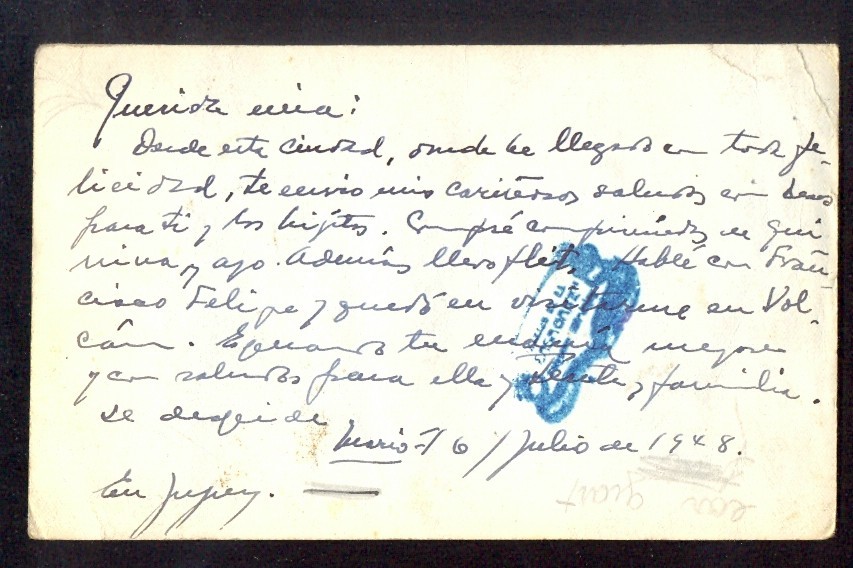 Querida mia:
Desde esta ciudad, donde he llegado con toda fe-
licidad, te envio mis cariñosos saludos con besos
para ti y los hijitos. Compré comprimidos de qui
nina y ajo. Además llevo flit. Hablé con Fran-
cisco Felipe y quedó en visitarme en Vol-
cán. Esperando tu mamá mejore
y con saludos para ella y familia.
se despide
Mario 16/Julio de 1948.
En Jujuy.